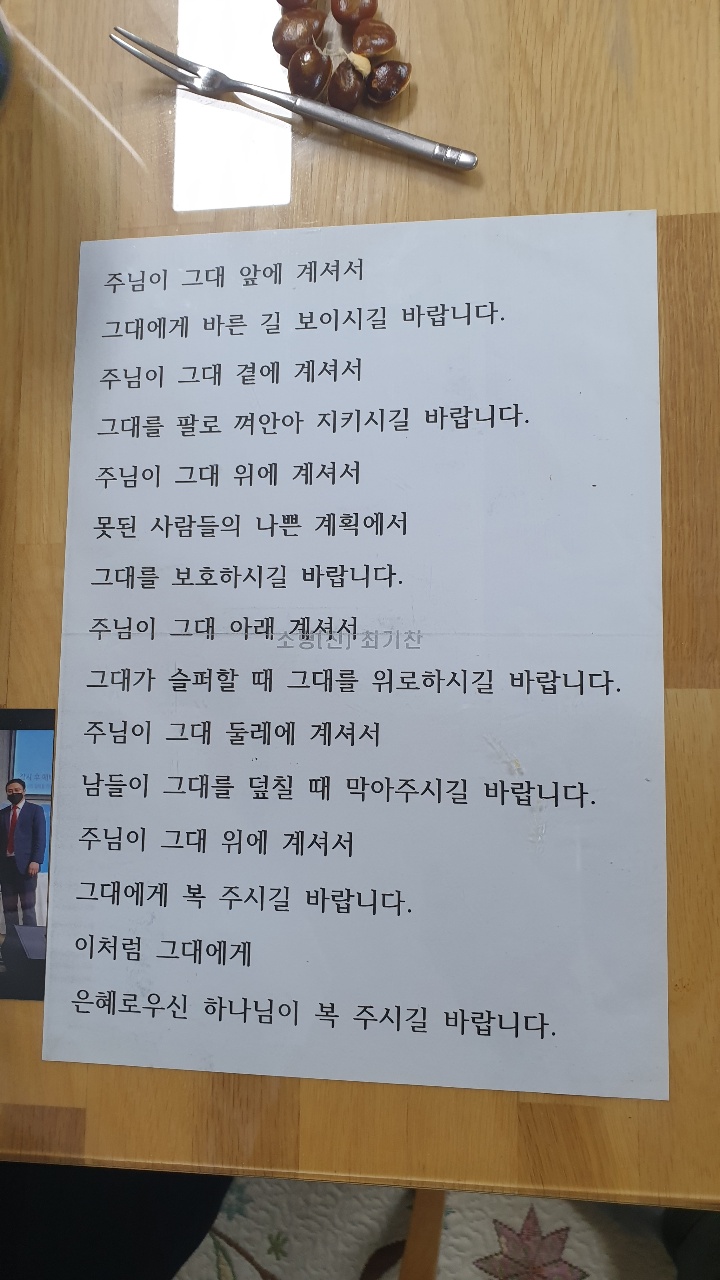 주님이 그대 앞에 계셔서
그대에게 바른 길 보이시길 바랍니다.
주님이 그대 곁에 계셔서
그대를 팔로 껴안아 지키시길 바랍니다.
주님이 그대 위에 계셔서
못된 사람들의 나쁜 계획에서
그대를 보호하시길 바랍니다.
주님이 그대 아래 계셔서
최기찬
그대가 슬퍼할 때 그대를 위로하시길 바랍니다.
주님이 그대 둘레에 계셔서
남들이 그대를 덮칠 때 막아주시길 바랍니다.
주님이 그대 위에 계셔서
그대에게 복 주시길 바랍니다.
이처럼 그대에게
은혜로우신 하나님이 복 주시길 바랍니다.